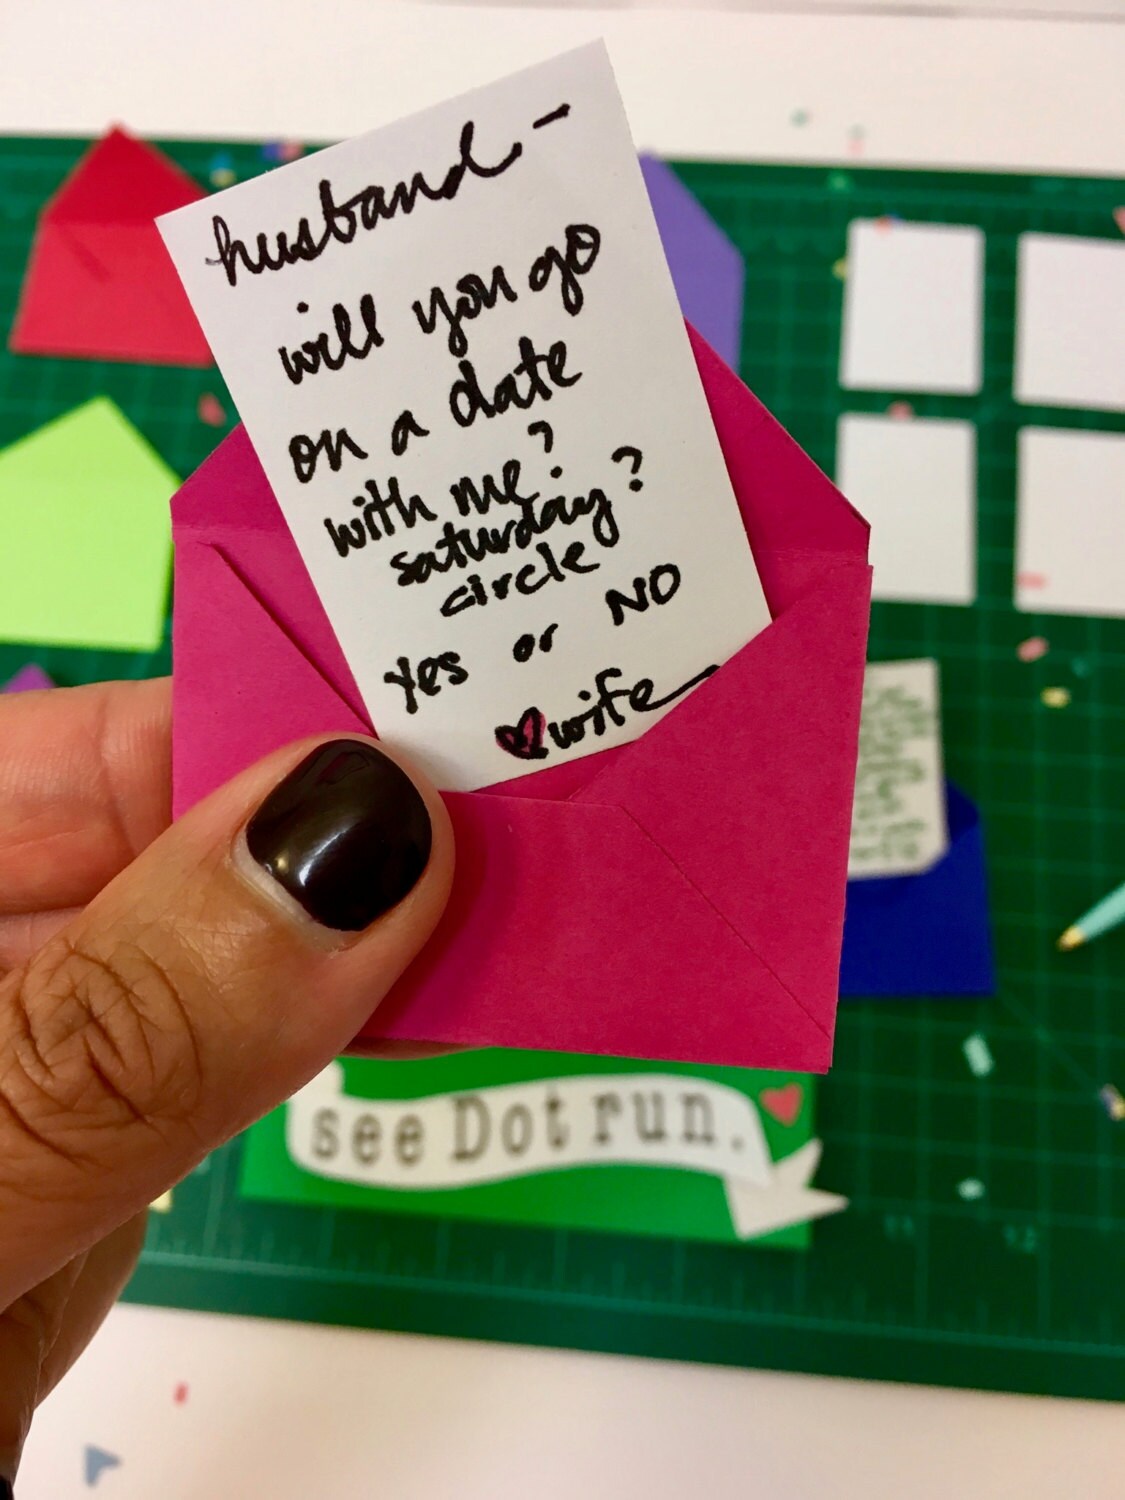 husband -
will you go
on a date
with me?
saturday?
circle
yes or NO
wife
see Dot run.
11 12